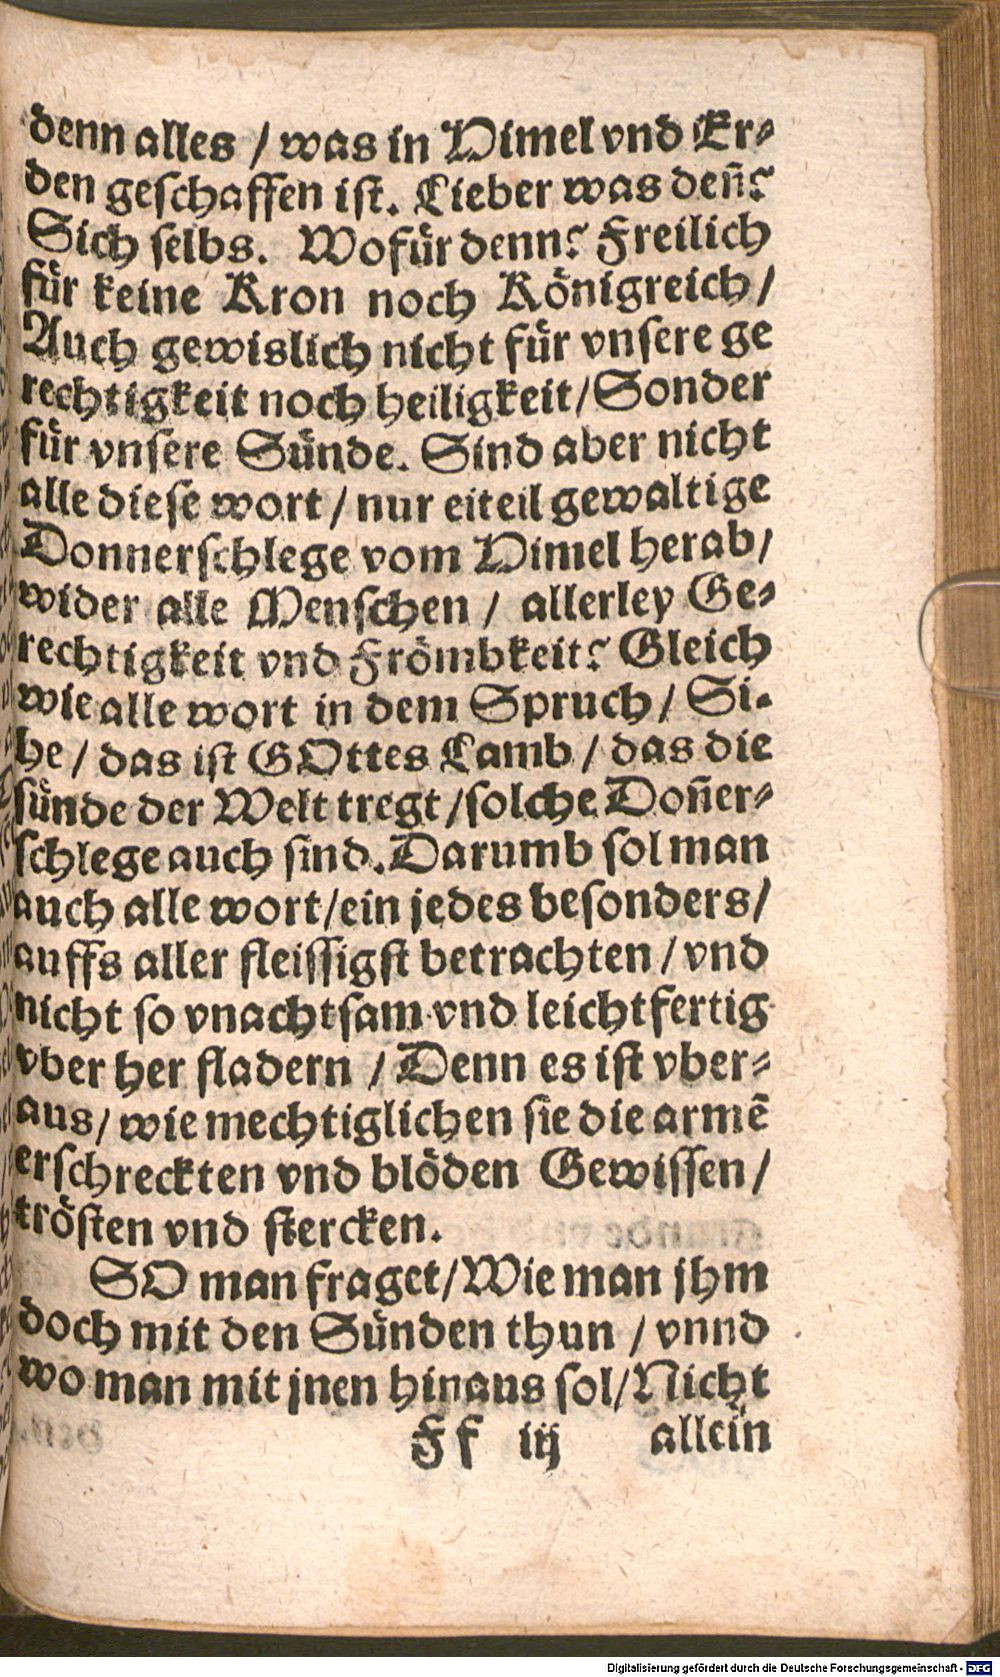 denn alles / was in Himel vnd Er⸗
den geschaffen ist. Lieber was deñ?
Sich selbs. Wofür denn? Freilich
für keine Kron noch Königreich /
Auch gewislich nicht für vnsere ge
rechtigkeit noch heiligkeit / Sonder
für vnsere Sünde. Sind aber nicht
alle diese wort / nur eiteil gewaltige
Donnerschlege vom Himel herab /
wider alle Menschen / allerley Ge⸗
rechtigkeit vnd Frömbkeit? Gleich
wie alle wort in dem Spruch / Si⸗
he / das ist GOttes Lamb / das die
sünde der Welt tregt / solche Doñer⸗
schlege auch sind. Darumb sol man
auch alle wort / ein jedes besonders /
auffs aller fleissigst betrachten / vnd
nicht so vnachtsam vnd leichtfertig
vber her fladern / Denn es ist vber⸗
aus / wie mechtiglichen sie die armē
erschreckten vnd blöden Gewissen /
trösten vnd stercken.
SO man fraget / Wie man jhm
doch mit den Sünden thun / vnnd
wo man mit jnen hinaus sol / Nicht
Ff iij allein
Digitalisierung gefördert durch die Deutsche Forschungsgemeinschaft - DFG